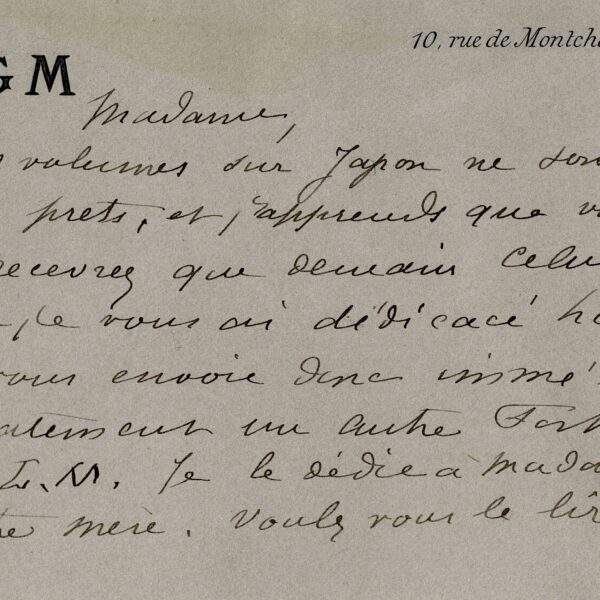 10, rue de Montch
GM
Madame,
volumes sur Japon ne son
prets, et j'apprends que v
recevrez que demain celu
je vous ai dédicacé h
vous envoie donc immé
atement un autre Fort
L.M. Je le dédie a mada
tre mère. Voulez vous le lir